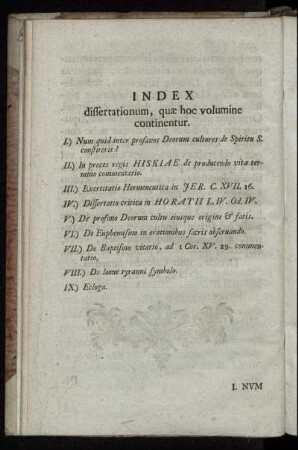 INDEX
dissertationum, quæ hoc volumine
continentur.
I.) Num quid inter profanos Deorum cultores de Spiritu S.
constiterit?
II.) In preces regis HISKIAE de producendo vitæ ter-
mino commentatio.
III.) Exercitatio Hermeneutica in JER. C. XVII. 16.
IV.) Dissertatio critica in HORATII L. IV. Od. IV.
V.) De profano Deorum cultu eiusque origine & fatis.
VI.) De Euphemismo in orationibus sacris observando.
VII.) De Baptismo vicario, ad 1 Cor. XV. 29. commen-
tatio.
VIII.) De leone tyranni symbolo.
IX.) Ecloga.
I. NVM